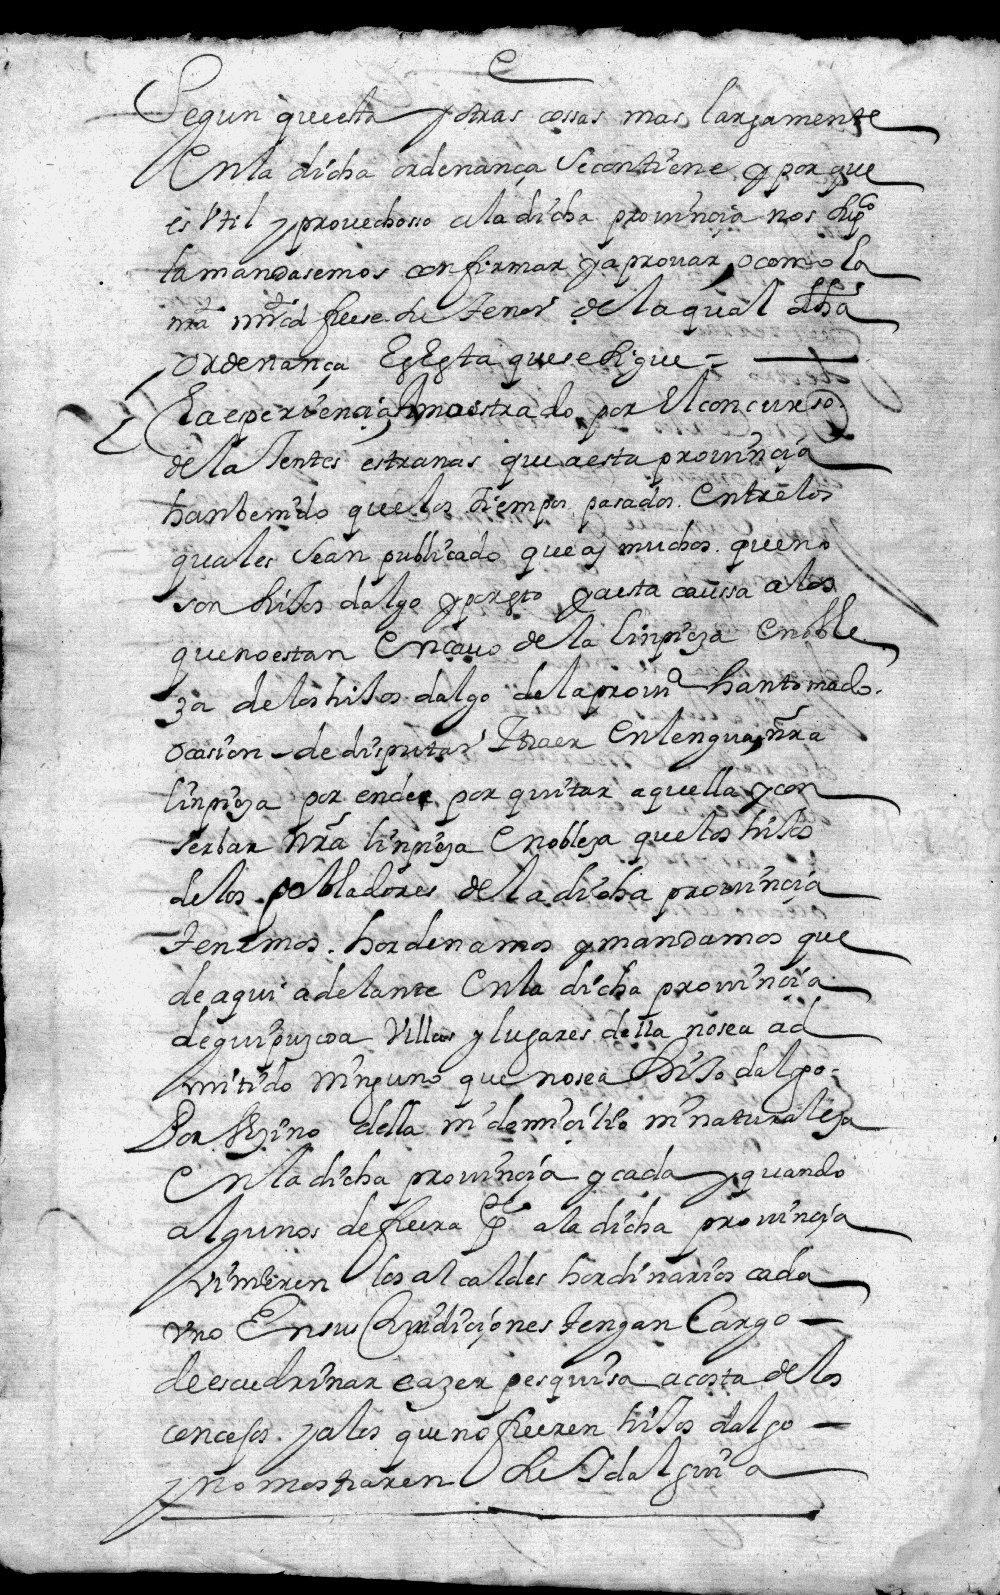 Segun que esto y otras cossas mas largamente
En la dicha ordenança se contiene y por que
es Vtil y provechosso a la dicha provinçia nos supco
la mandasemos confirmar y aprouar, o como la
mra mrd fuese su tenor de la qual dha
ordenança Es Esta que se sigue =
La esperiençia a mostrado por El concurso
de las Jentes estranas que a esta provinçia
han benido que los tiempos pasados. Entre los
quales sean publicado que aj muchos. que no
son hijos dalgo y por esto y a esta caussa a los
que no estan En cauo de la linpieza E noble
za de los hijos dalgo de la provia han tomado.
ocasion de disputar Traer En lengua, nra
linpieza por ende, por quitar aquella y con
serbar nra linpieza E nobleza que los hijos
de los pobladores de la dicha provinçia
tenemos. hordenamos y mandamos que
de aqui adelante En la dicha provinçia
de guipuzcoa Villas y lugares della no sea ad
mitido ninguno que no sea hijo dalgo.
Por Vezino della ni demiçilio ni naturaleza
En la dicha provinçia y cada y quando
algunos de fuera pte a la dicha provinçia
vinieren los alcaldes hordinarios cada
vno En sus Juridiçiones tengan Cargo
de escudrinar e azer pesquisa a costa de los
concejos. y a los que no fueren hijos dalgo
y no mostraren su Idalguia